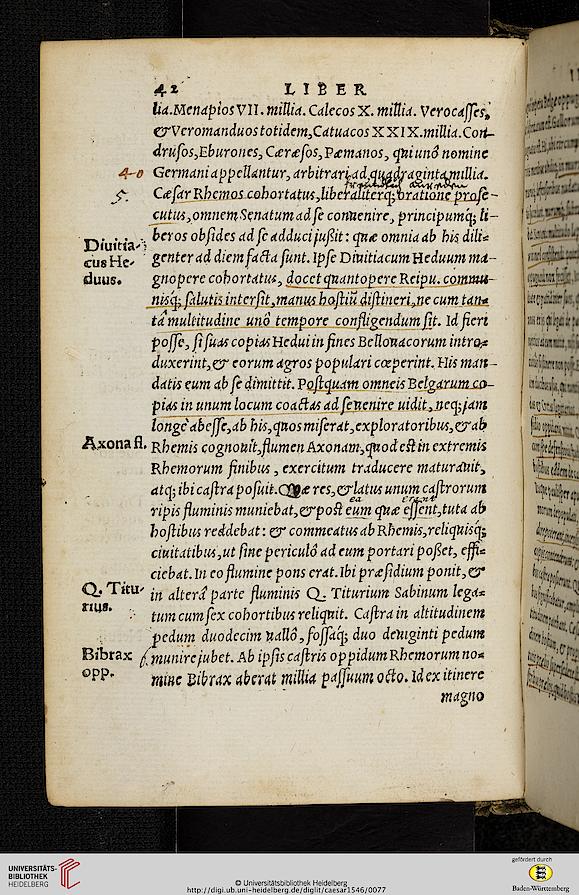 42 LIBER
lia. Menapios VII. millia. Calecos X. millia. Verocasses,
& Veromanduos totidem, Catuacos XXIX. millia. Con-
drusos, Eburones, Cæræsos, Pæmanos, qui unô nomine
40 Germani appellantur, arbitrari ad quadraginta millia.
5. Cæsar Rhemos cohortatus, liberaliterq; oratione prose-
cutus, omnem Senatum ad se conuenire, principumq; li-
beros obsides ad se adduci jußit: quæ omnia ab his dili=
Diuitia-
cus He-
duus.
genter ad diem facta sunt. Ipse Diuitiacum Heduum ma-
gnopere cohortatus, docet quantopere Reipu. commu-
nisq; salutis intersit, manus hostiũ distineri, ne cum tan=
tâ multitudine unô tempore confligendum sit. Id fieri
posse, si suas copias Hedui in fines Bellouacorum intro=
duxerint, & eorum agros populari cœperint. His man-
datis eum ab se dimittit. Postquam omneis Belgarum co-
pias in unum locum coactas ad se uenire uidit, neq; jam
longè abesse, ab his, quos miserat, exploratoribus, & ab
Axona fl.
Rhemis cognouit, flumen Axonam, quod est in extremis
Rhemorum finibus, exercitum traducere maturauit,
atq; ibi castra posuit. Quæ res, & latus unum castrorum
ea erant
ripis fluminis muniebat, & post eum quæ essent, tuta ab
hostibus reddebat: & commeatus ab Rhemis, reliquisq;
ciuitatibus, ut sine periculô ad eum portari poßet, effi=
ciebat. In eo flumine pons erat. Ibi præsidium ponit, &
Q. Titu-
rius.
in alterâ parte fluminis Q. Titurium Sabinum lega=
tum cum sex cohortibus reliquit. Castra in altitudinem
pedum duodecim uallô, fossaq; duo deuiginti pedum
Bibrax
opp.
6. munire jubet. Ab ipsis castris oppidum Rhemorum no=
mine Bibrax aberat millia passuum octo. Id ex itinere
magno
UNIVERSITÄTS-
BIBLIOTHEK
HEIDELBERG
© Universitätsbibliothek Heidelberg
http://digi.ub.uni-heidelberg.de/diglit/caesar1546/0077
gefördert durch
Baden-Württemberg